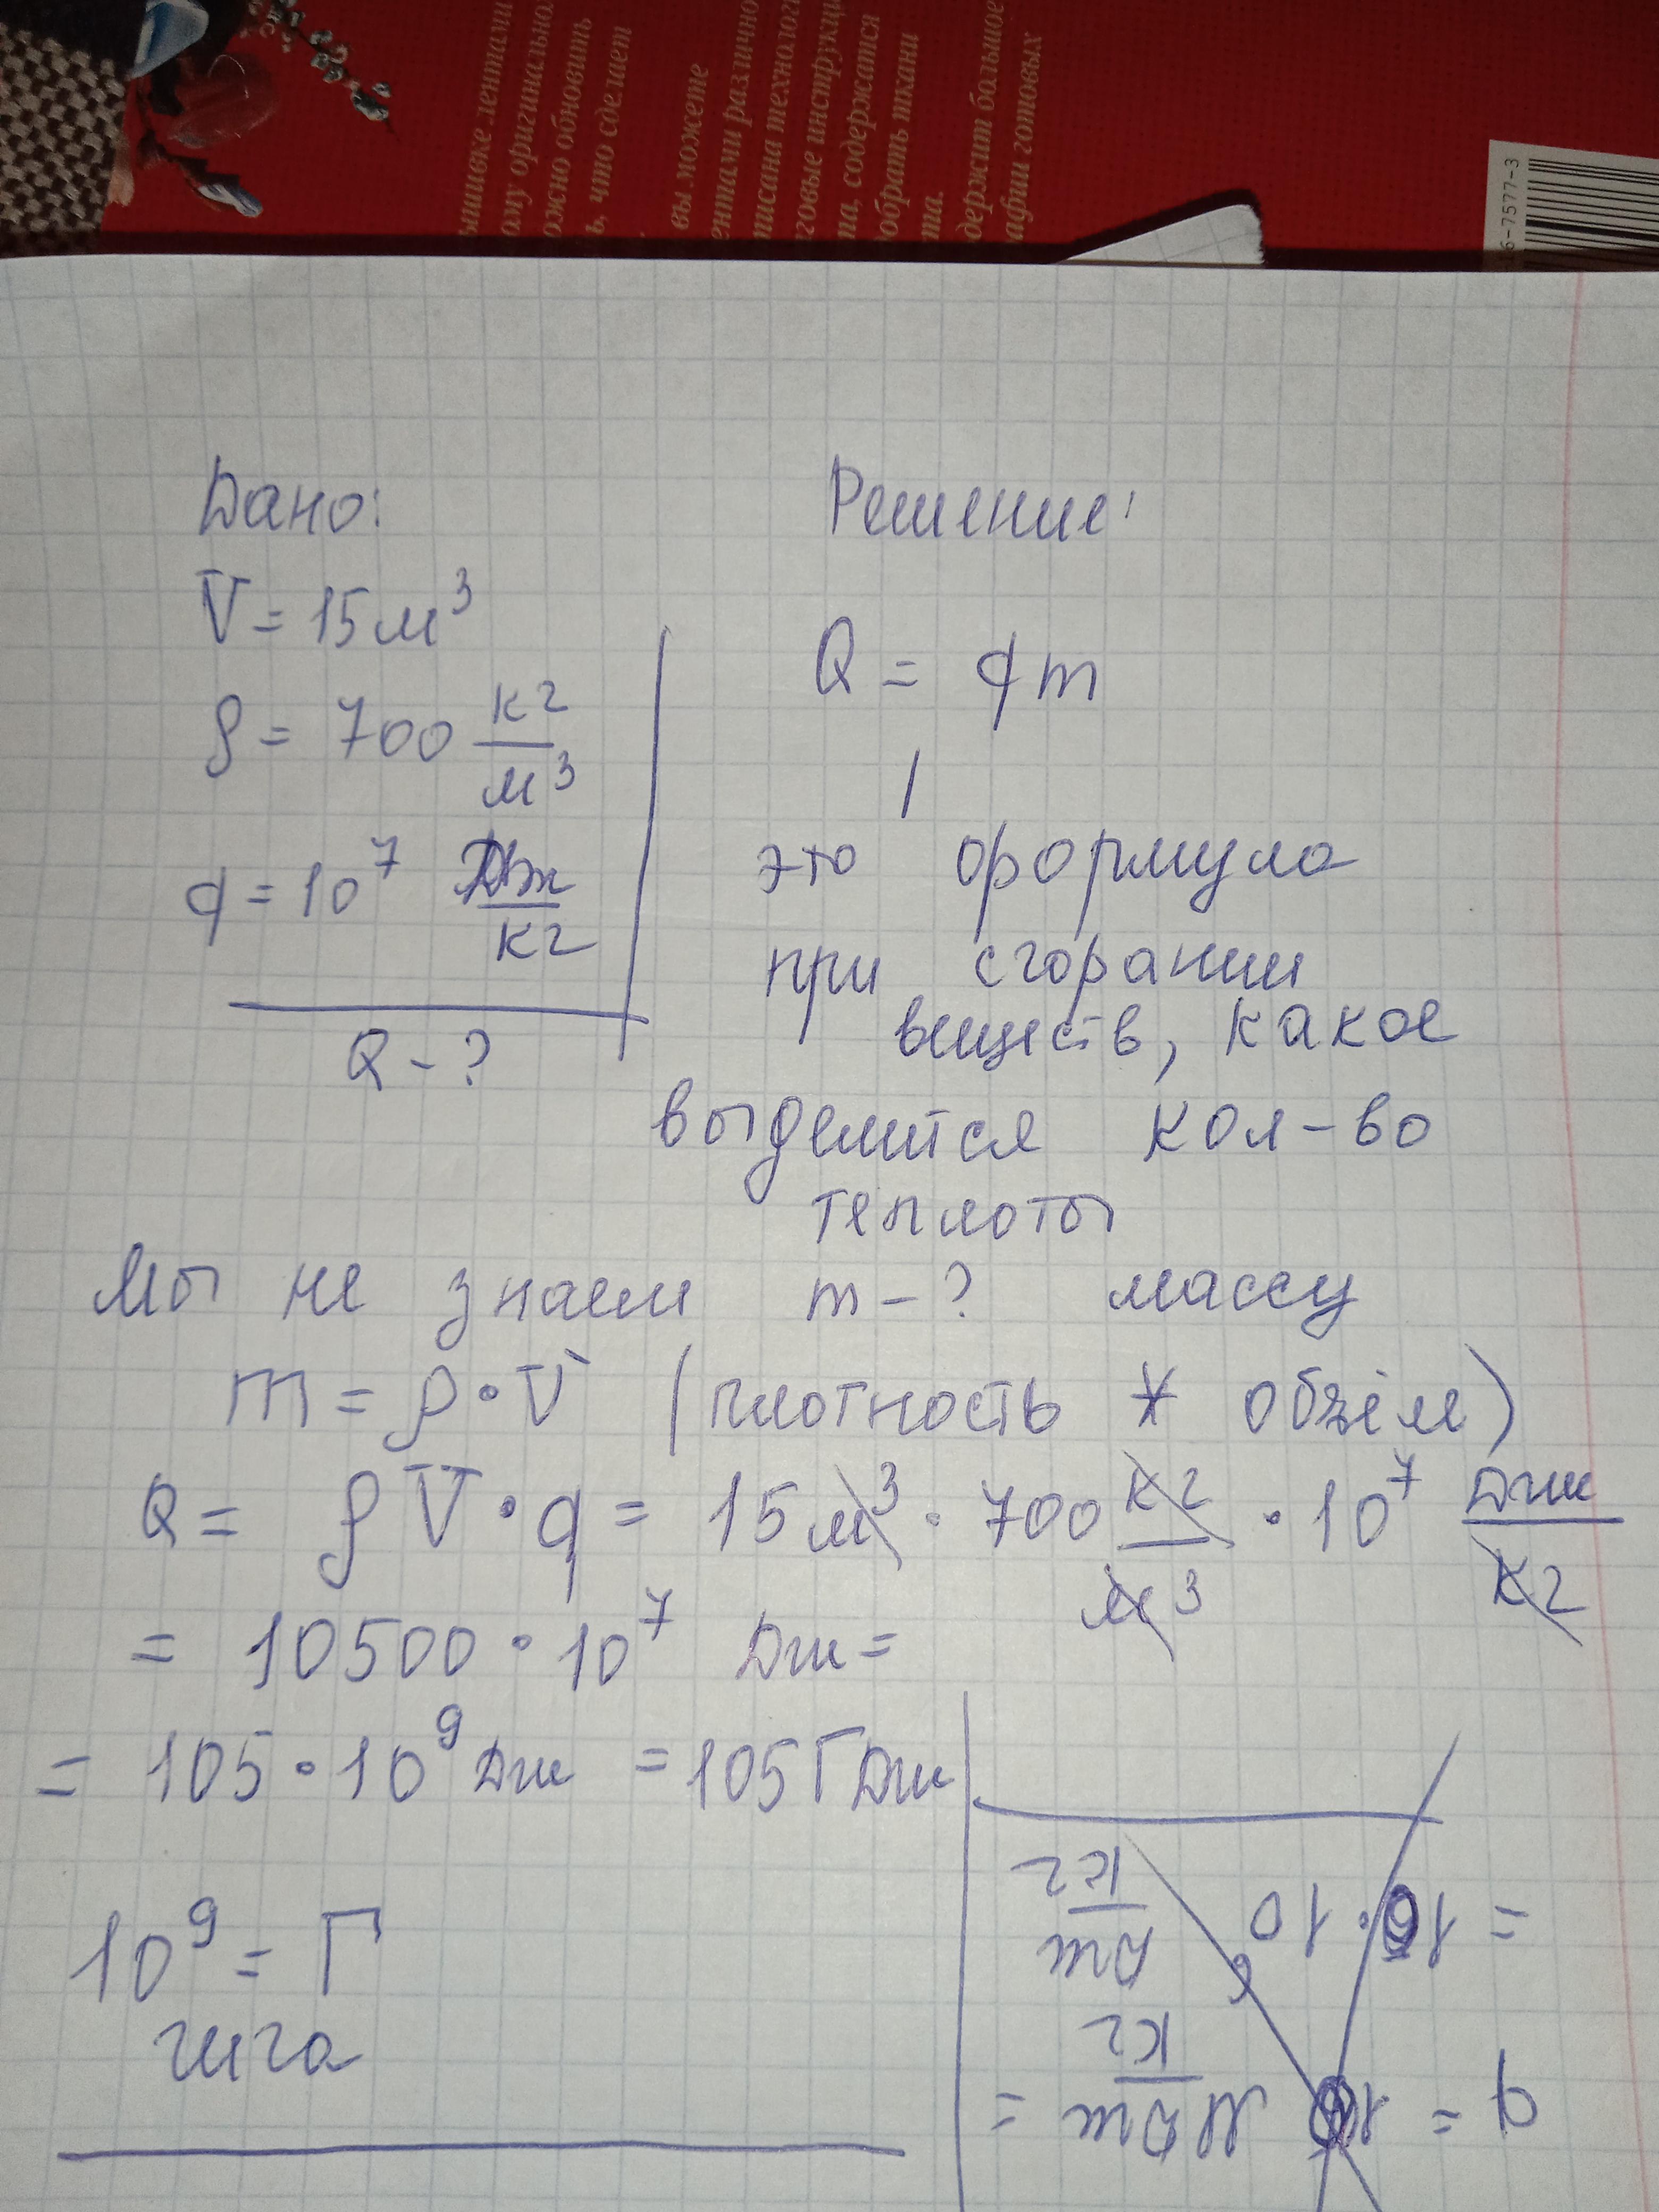 ышивке лентами
ому оригинально
ожно обновить
ь, что сделает
вы можете
ентами различно
писана технологи
говые инструкци
па, содержатся
обрать ткани
та.
держит большое
афии готовых
6-7577-3
Дано:
V = 15 м³
ρ = 700 кг/м³
q = 10⁷ Дж/кг
Q - ?
Решение:
Q = qm
это формула
при сгорании
веществ, какое
выделится кол-во
теплоты
Мы не знаем m - ? массу
m = ρ · V (плотность * объём)
Q = ρ V · q = 15 м³ · 700 кг/м³ · 10⁷ Дж/кг
= 10500 · 10⁷ Дж =
= 105 · 10⁹ Дж = 105 ГДж
10⁹ = Г
гига
q = 10 МДж/кг =
= 10 · 10⁶ Дж/кг